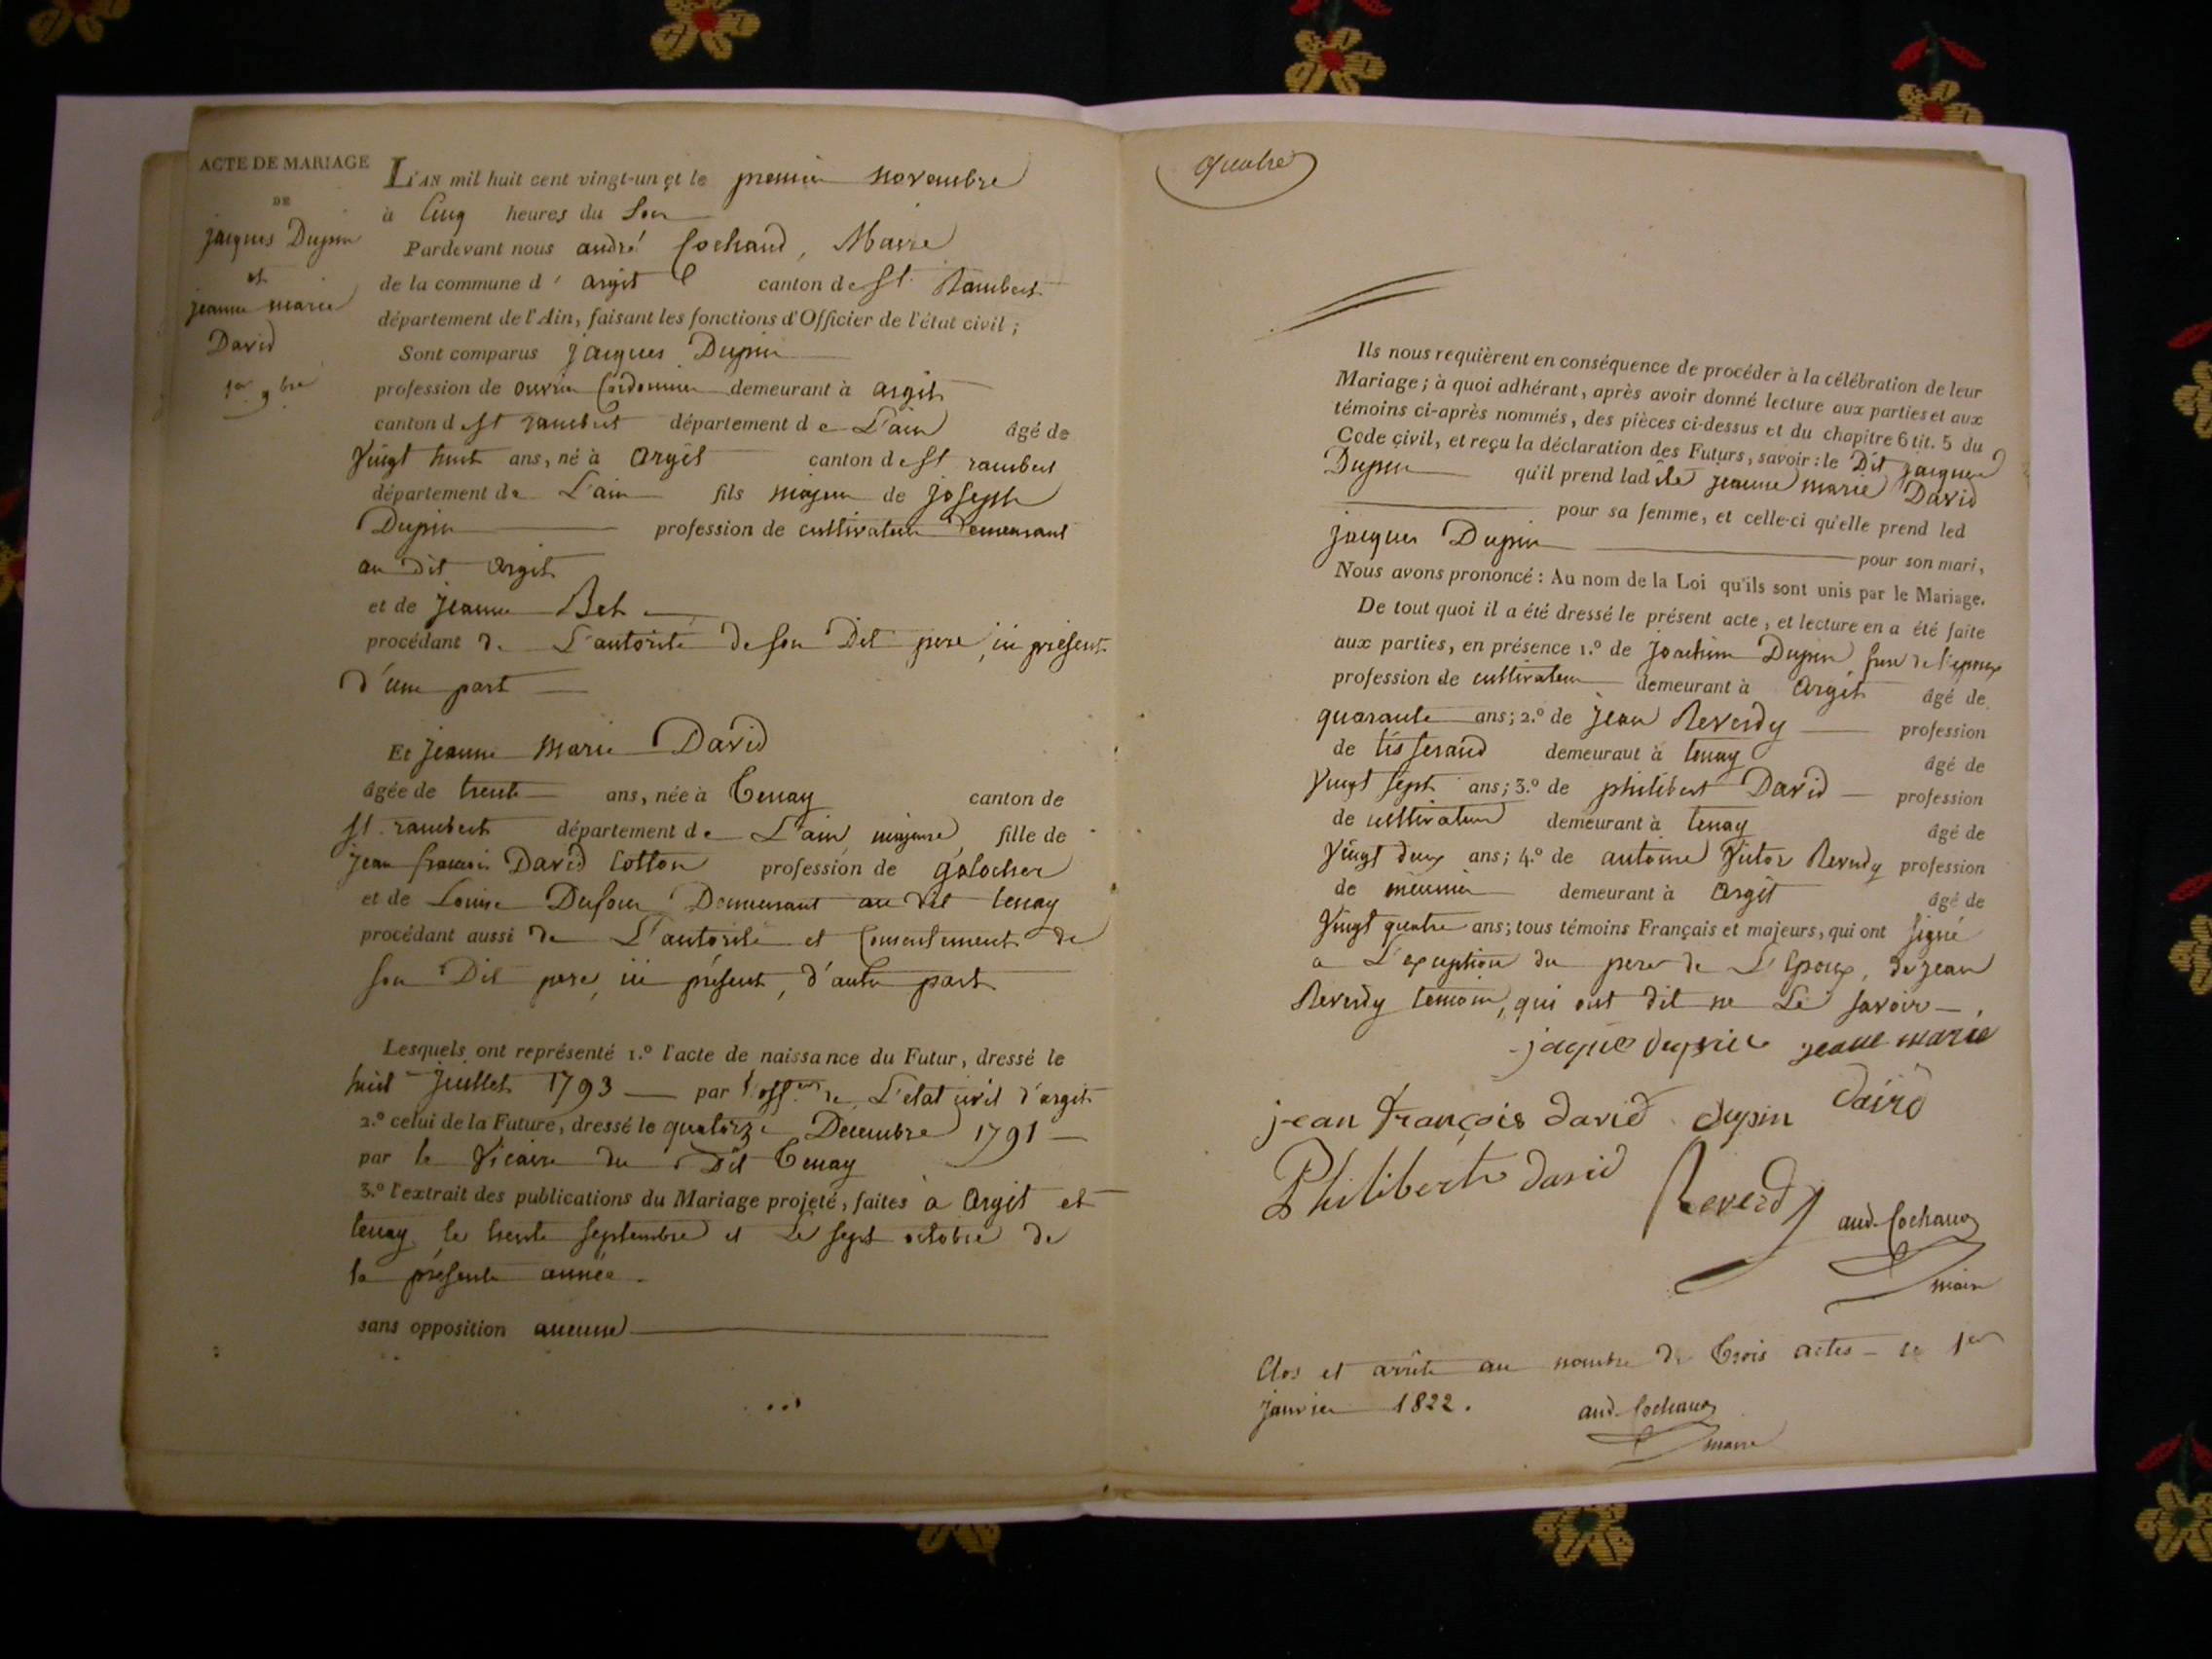 ACTE DE MARIAGE
DE
jacques Dupin
et
jeanne marie
David
1er 9bre
L'AN mil huit cent vingt-un et le premier novembre
à Cinq heures du Soir
Pardevant nous andré Cochand, Maire
de la commune d' argit canton de St. Rambert
département de l'Ain, faisant les fonctions d'Officier de l'état civil;
Sont comparus jacques Dupin
profession de ouvrier Cordonnier demeurant à argit
canton de St rambert département de L'ain âgé de
Vingt huit ans, né à argit canton de St rambert
département de L'ain fils majeur de joseph
Dupin profession de cultivateur Demeurant
au dit argit
et de jeanne Bet
procédant de L'autorité de son Dit pere, ici présent
d'une part
Et jeanne Marie David
âgée de trente ans, née à Tenay canton de
St. rambert département de L'ain, majeure, fille de
jean françois David Cotton profession de galocher
et de Louise Dufour Demeurant au dit tenay
procédant aussi de L'autorité et Consentement de
son Dit pere, ici présent, d'autre part
Lesquels ont représenté 1.º l'acte de naissance du Futur, dressé le
huit juillet 1793 par l'off.er de L'etat civil d'argit
2.º celui de la Future, dressé le quatorze Decembre 1791
par le Vicaire du Dit Tenay
3.º l'extrait des publications du Mariage projeté, faites à argit et
tenay le trente septembre et Le sept octobre de
la présente année.
sans opposition aucune
quatre
Ils nous requièrent en conséquence de procéder à la célébration de leur
Mariage; à quoi adhérant, après avoir donné lecture aux parties et aux
témoins ci-après nommés, des pièces ci-dessus et du chapitre 6 tit. 5 du
Code civil, et reçu la déclaration des Futurs, savoir: le Dit jacques
Dupin qu'il prend lad ite jeanne marie David
pour sa femme, et celle-ci qu'elle prend led
jacques Dupin pour son mari,
Nous avons prononcé: Au nom de la Loi qu'ils sont unis par le Mariage.
De tout quoi il a été dressé le présent acte, et lecture en a été faite
aux parties, en présence 1.º de joachim Dupin frere de l'epoux
profession de cultivateur demeurant à argit âgé de
quarante ans; 2.º de jean Reverdy profession
de tisserand demeurant à tenay âgé de
Vingt sept ans; 3.º de philibert David profession
de cultivateur demeurant à tenay âgé de
Vingt deux ans; 4.º de antoine Victor Reverdy profession
de meunier demeurant à argit âgé de
Vingt quatre ans; tous témoins Français et majeurs, qui ont signé
a L'exception du pere de L'Epoux, de jean
Reverdy temoin, qui ont dit ne Le savoir
jaque dupin jeane marie
jean françois david dupin david
Philibert david Reverdy and. Cochand
maire
Clos et arrêté au nombre de trois actes le 1er
janvier 1822.
and. Cochand
maire